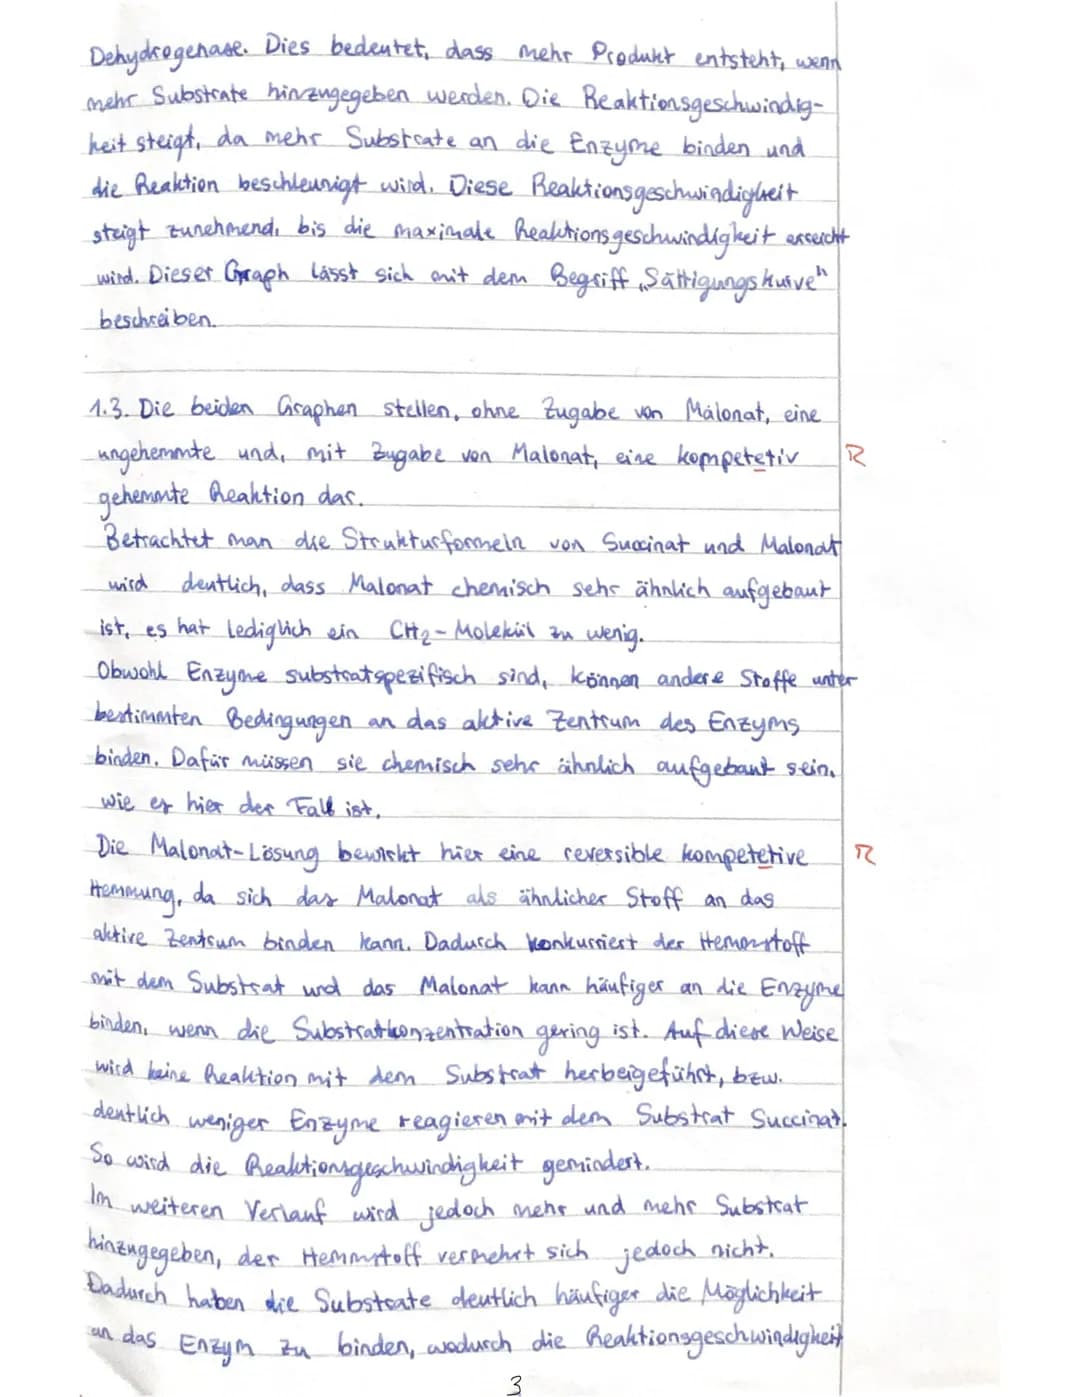 Dehydrogenase. Dies bedeutet, dass mehr Produkt entsteht, wenn
mehr Substrate hinzugegeben werden. Die Reaktionsgeschwindig-
keit steigt, da mehr Substrate an die Enzyme binden und
die Reaktion beschleunigt wird. Diese Reaktionsgeschwindigkeit
steigt zunehmend, bis die maximale Reaktionsgeschwindigkeit erreicht
wird. Dieser Graph lässt sich mit dem Begriff „Sättigungskurve"
beschreiben.
1.3. Die beiden Graphen stellen, ohne Zugabe von Malonat, eine
ungehemmte und, mit Zugabe von Malonat, eine kompetetiv R
gehemmte Reaktion dar.
Betrachtet man die Strukturformeln von Succinat und Malonat
wird deutlich, dass Malonat chemisch sehr ähnlich aufgebaut
ist, es hat lediglich ein CH2-Molekül zu wenig.
Obwohl Enzyme substratspezifisch sind, können andere Stoffe unter
bestimmten Bedingungen an das aktive Zentrum des Enzyms
binden. Dafür müssen sie chemisch sehr ähnlich aufgebaut sein,
wie es hier der Fall ist.
Die Malonat-Lösung bewirkt hier eine reversible kompetetive R
Hemmung, da sich das Malonat als ähnlicher Stoff an das
aktive Zentrum binden kann. Dadurch konkurriert der Hemmstoff
mit dem Substrat und das Malonat kann häufiger an die Enzyme
binden, wenn die Substratkonzentration gering ist. Auf diese Weise
wird keine Reaktion mit dem Substrat herbeigeführt, bzw.
deutlich weniger Enzyme reagieren mit dem Substrat Succinat.
So wird die Reaktionsgeschwindigkeit gemindert.
Im weiteren Verlauf wird jedoch mehr und mehr Substrat
hinzugegeben, der Hemmstoff vermehrt sich jedoch nicht.
Dadurch haben die Substrate deutlich häufiger die Möglichkeit
an das Enzym zu binden, wodurch die Reaktionsgeschwindigkeit
3